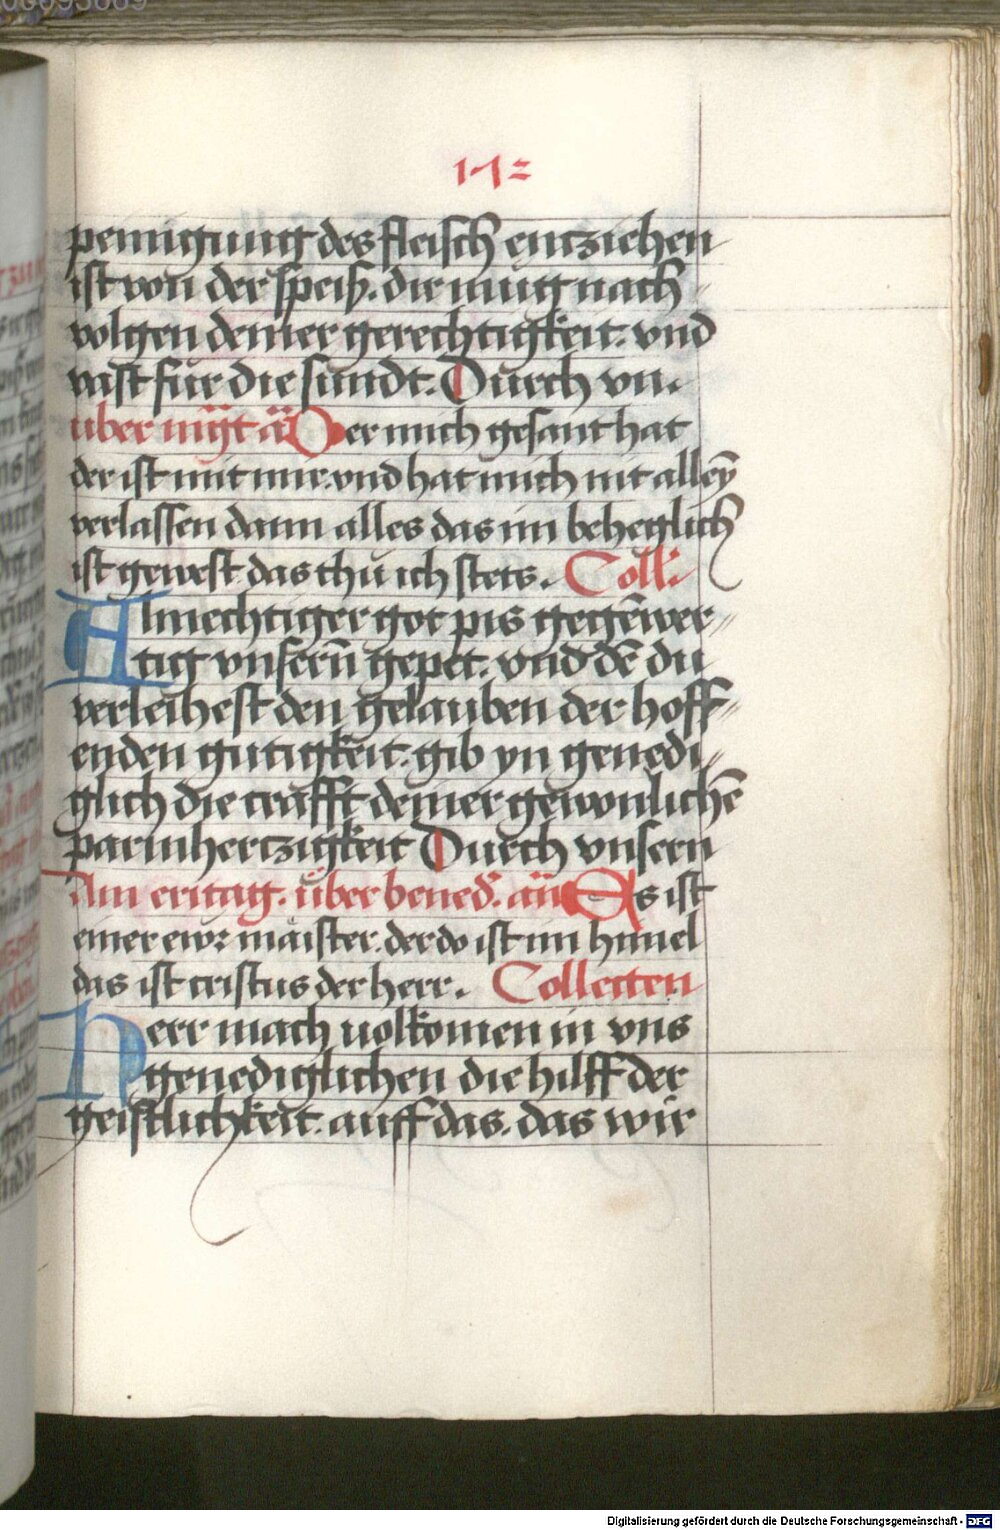 112
peinigung des fleisch entziehen
ist von der speiß. die mug nach
volgen deiner gerechtigkeit. vnd
vast fur die sundt. Durch vn.
uber mgt aͤ Der mich gesant hat
der ist mit mir. vnd hat mich nit alleȳ
verlassen dann alles das im beheglich
ist gewest das thu ich stets. Coll.
Almechtiger got pis gegēwer
tig vnsern̄ gepet. vnd dē du
verleihest den gelauben der hoff
enden gutigkeit. gib yn genedi
glich die crafft deiner gewonlichē
parmhertzigkeit Durch vnsern
Am eritag. uber bened. an̄ Es ist
einer ewr maister. der do ist im himel
das ist cristus der herr. Collecten
Herr mach uolkomen in vns
genediglichen die hilff der
geistlichkeit. auff das. das wir
Digitalisierung gefördert durch die Deutsche Forschungsgemeinschaft - DFG